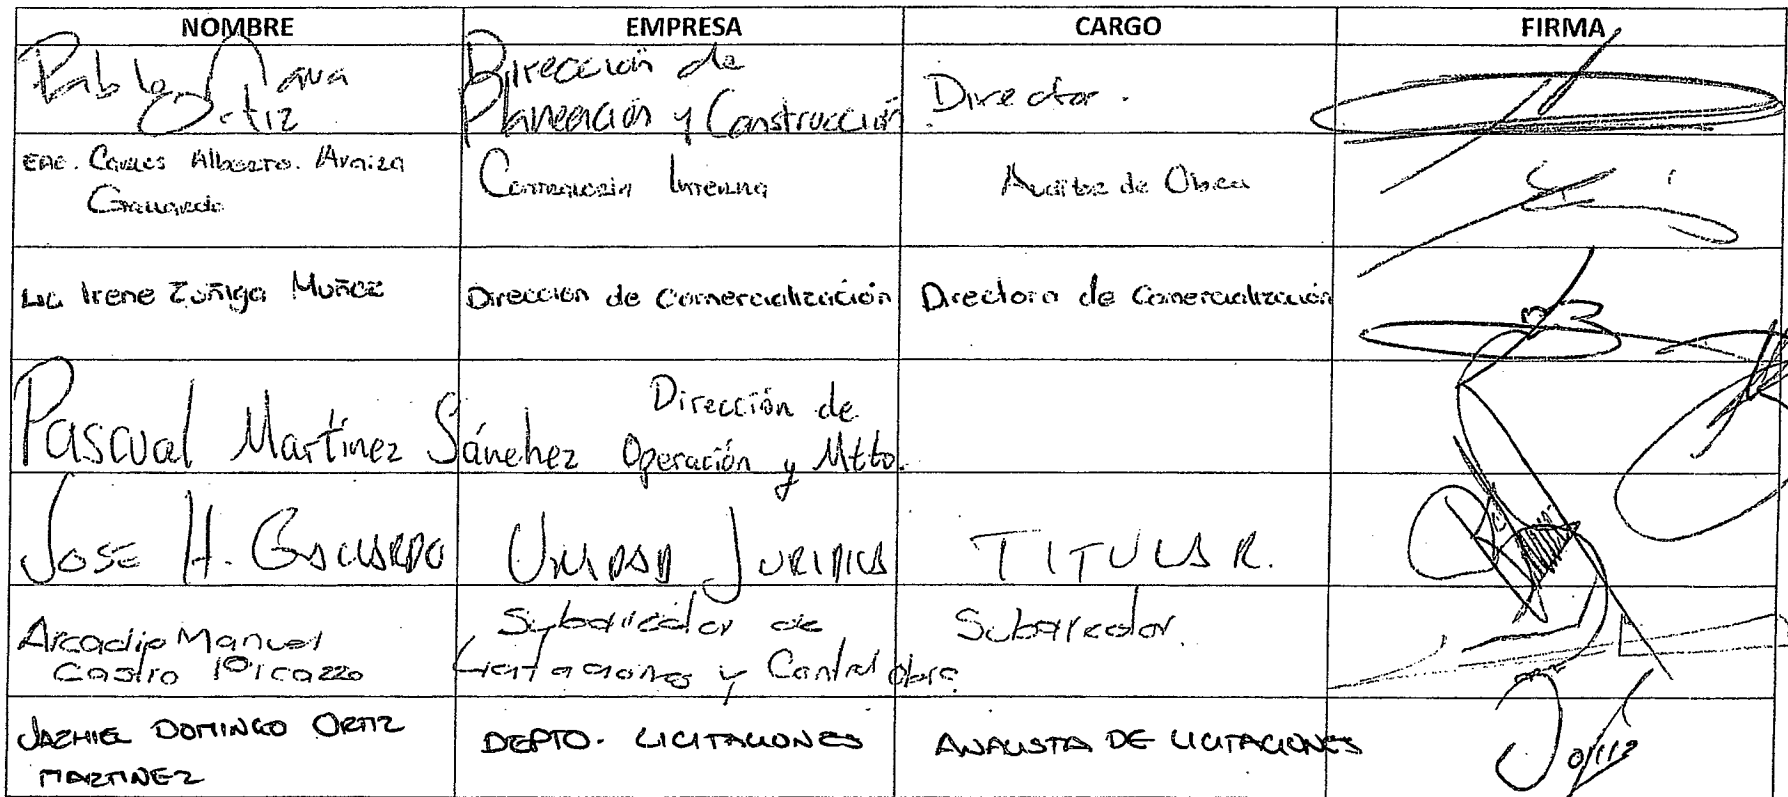 NOMBRE EMPRESA CARGO FIRMA
Pablo Nava Ortiz Dirección de Planeación y Construcción Director.
Carlos Alberto Araiza Contraloria Interna Auditor de Obra
Lic Irene Zuñiga Muñoz Dirección de Comercialización Directora de Comercialización
Pascual Martínez Sánchez Dirección de Operación y Mtto.
Jose H. Gallardo UNIDAD JURIDICA TITULAR.
Arcadio Manuel Castro Picazzo Subdirector de Licitaciones y Control obra Subdirector.
JAZHIEL DOMINGO ORTIZ MARTINEZ DEPTO. LICITACIONES ANALISTA DE LICITACIONES